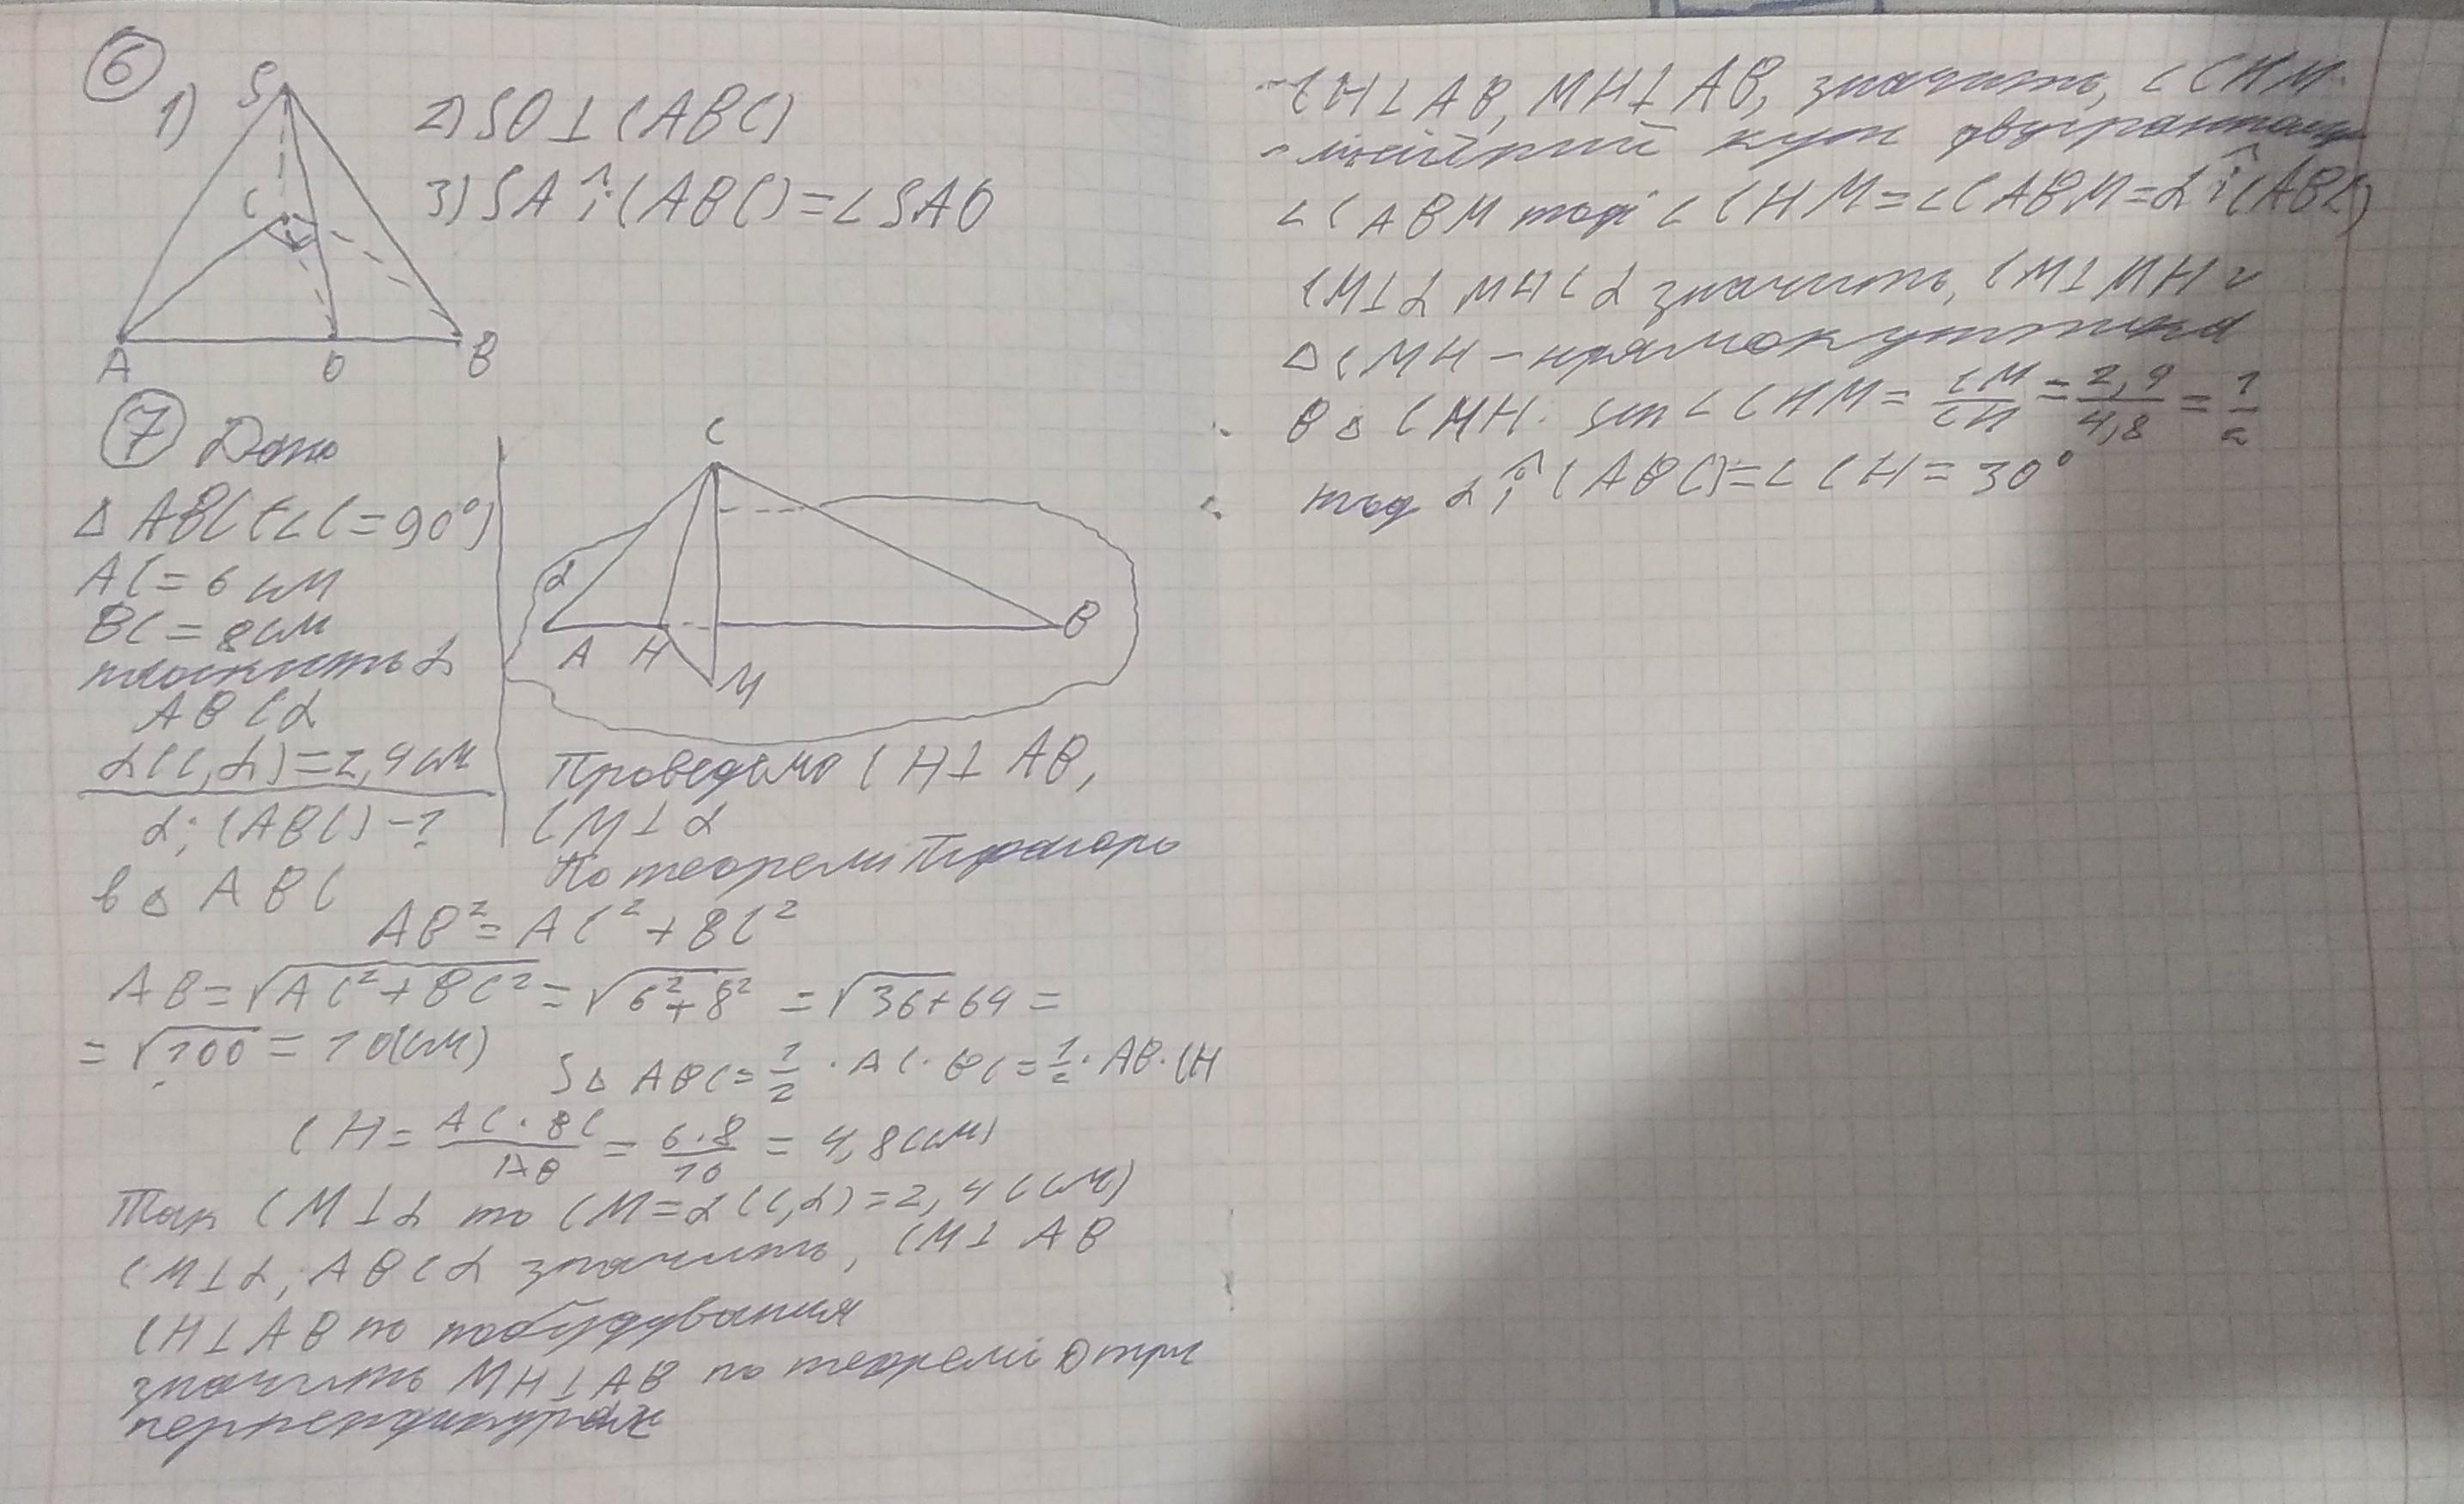 6
1)
S
C
A
O
B
2) SO⊥(ABC)
3) SA ^; (ABC)=∠SAO
7 Дано
Δ ABC (∠C=90°)
AC=6 см
BC=8 см
площить α
AB⊂α
d(C,α)=2,4 см
α;(ABC)-?
C
α
A
H
B
M
Проведемо CH⊥AB,
CM⊥α
По теоремі Піфагора
в Δ ABC
AB²=AC²+BC²
AB=√AC²+BC²=√6²+8²=√36+64=
=√100=10(см)
SΔ ABC=1/2·AC·BC=1/2·AB·CH
CH=AC·BC/AB=6·8/10=4,8(см)
Так CM⊥α то CM=d(C,α)=2,4(см)
CM⊥α, AB⊂α значить, CM⊥AB
CH⊥AB по побудування
значить MH⊥AB по теоремі о три
перпендикулях
CH⊥AB, MH⊥AB, значить, ∠CHM-
- лінійний кут
∠CABM тоді ∠CHM=∠CABM=α^;(ABC)
CM⊥α MH⊂α значить, CM⊥MH
ΔCMH - прямокутна
В Δ CMH. sin∠CHM=CM/CH=2,4/4,8=1/2
тод α^;(ABC)=∠CH=30°